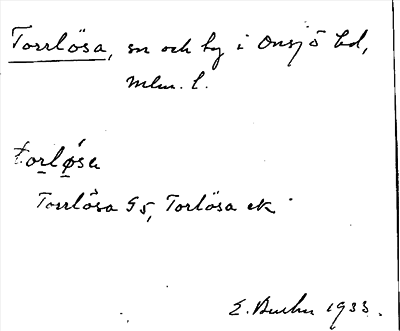 Torrlösa, sn och by i Onsjö hd,
Mlm. l.
torløsa
Torrlösa G5, Torlösa ek
E. 1933.